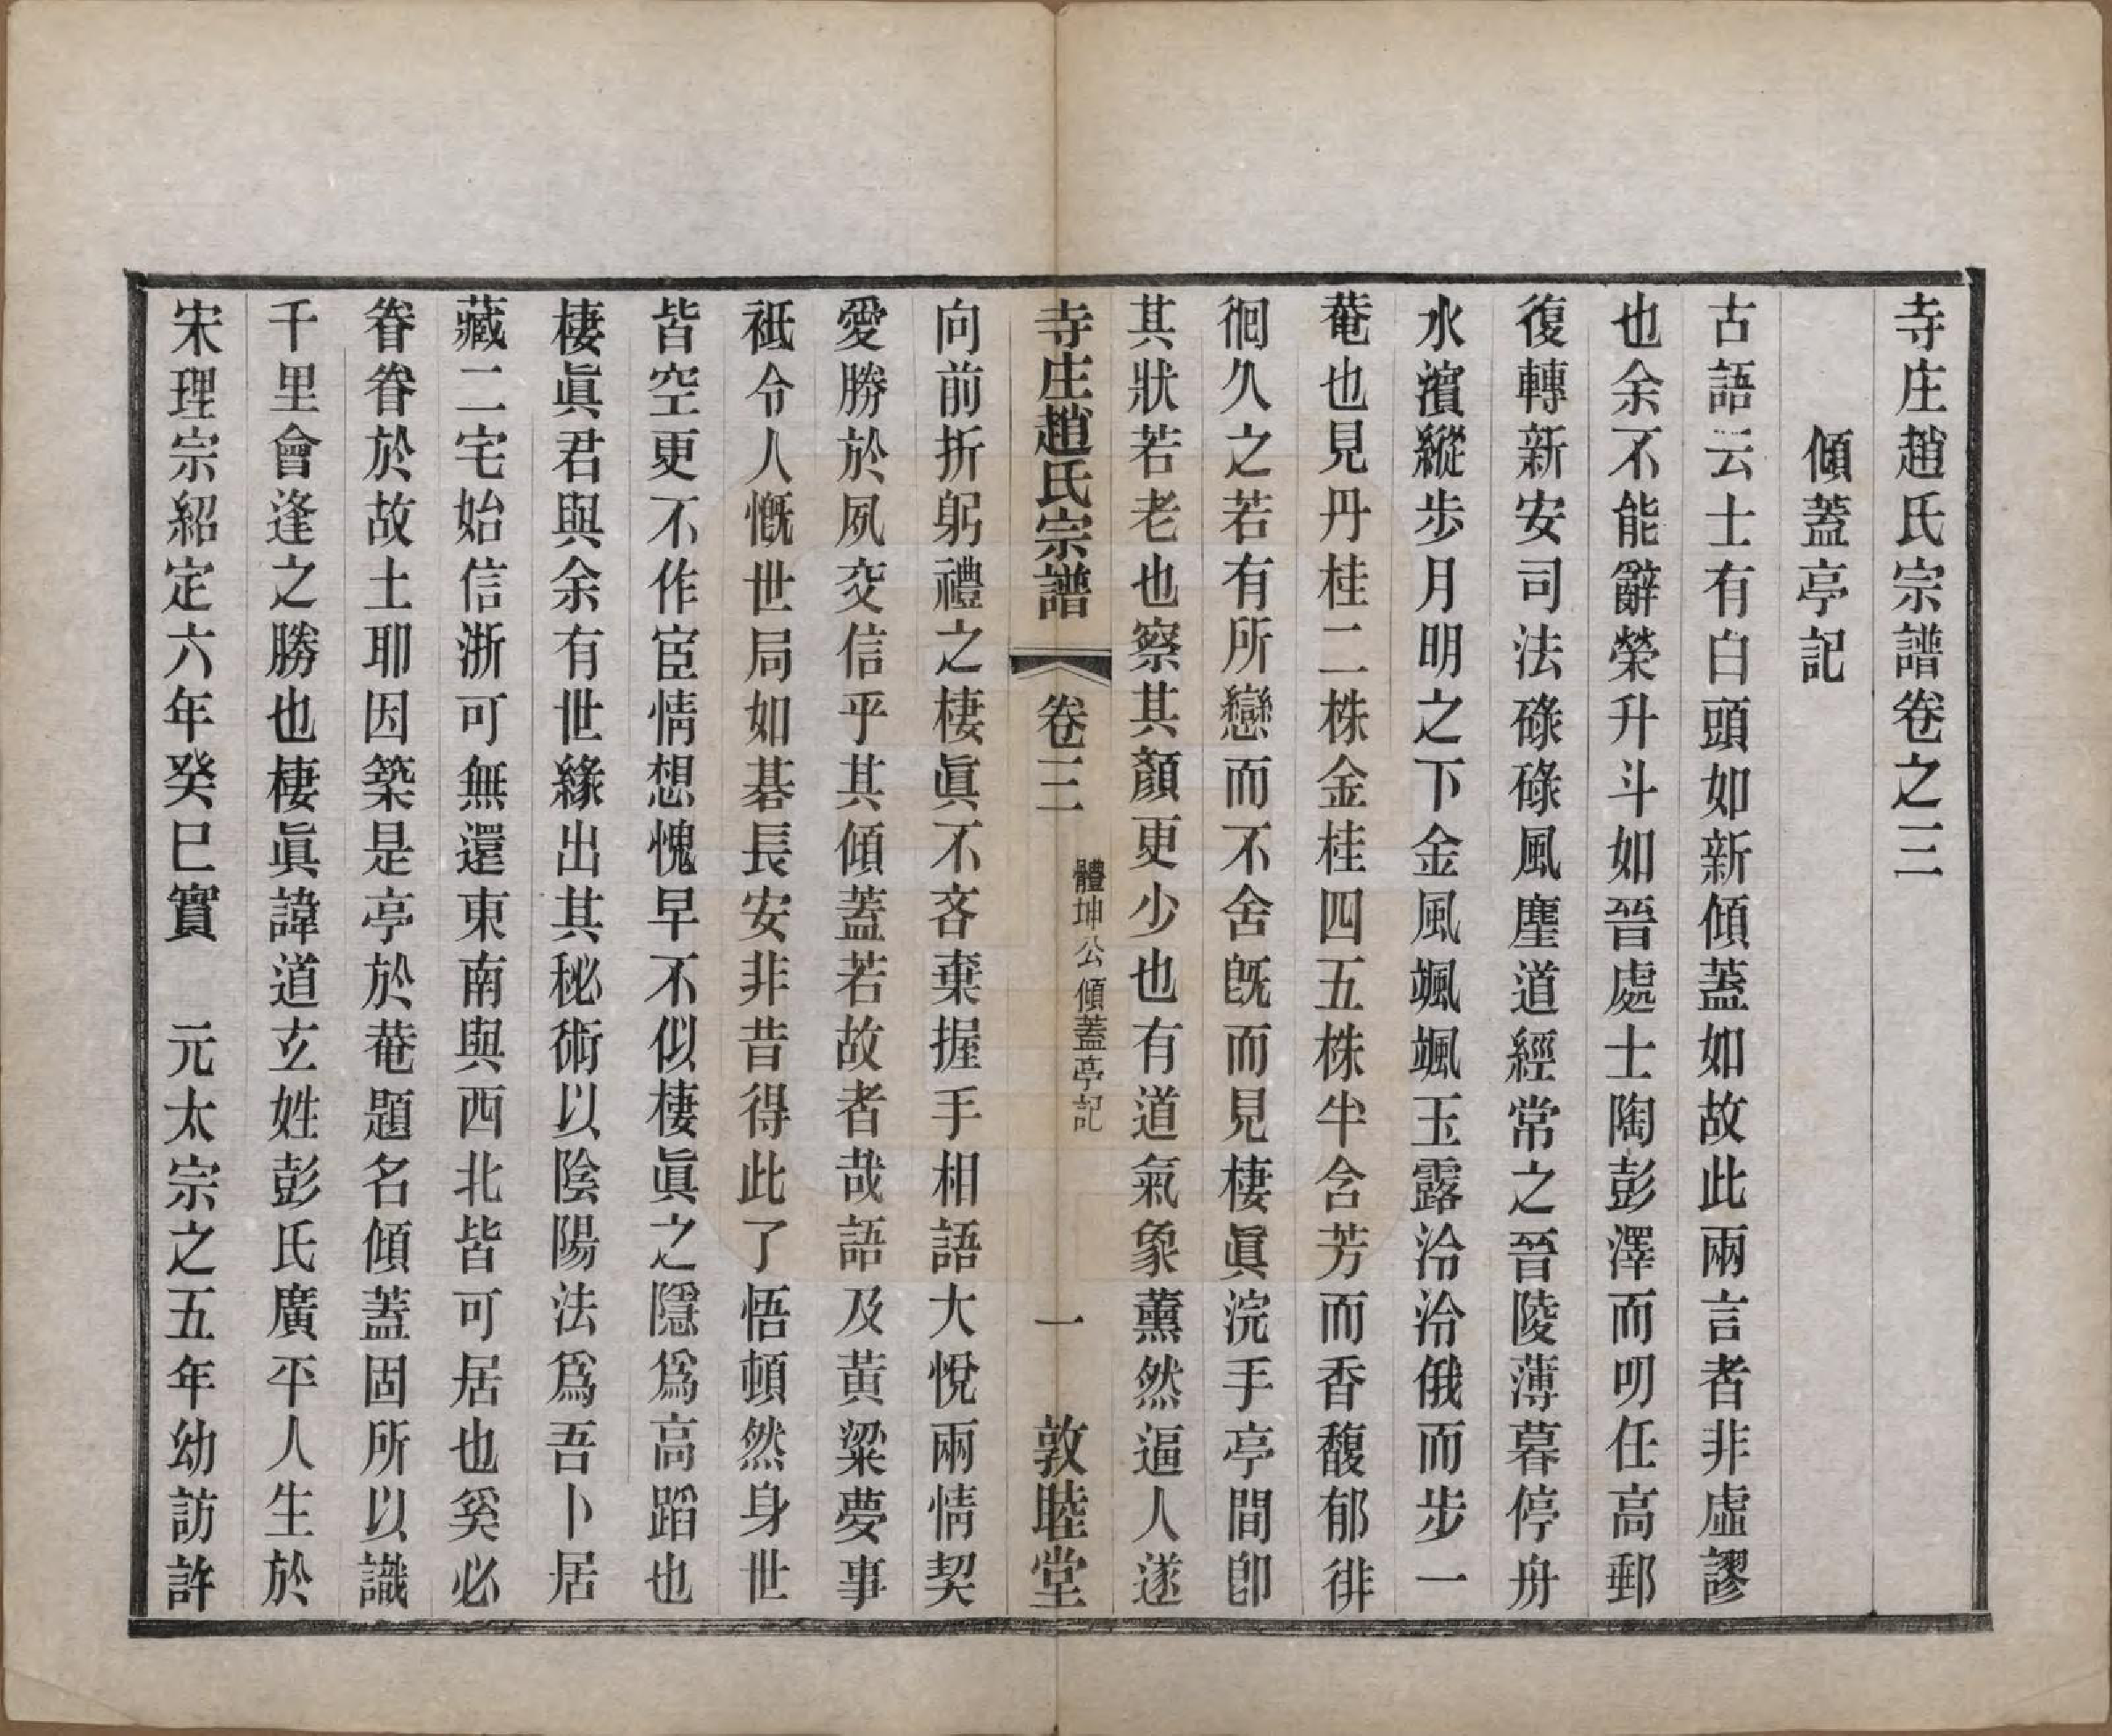 寺庄趙氏宗譜卷之三
傾蓋亭記
古語云士有白頭如新傾蓋如故此兩言者非虛謬
也余不能辭榮升斗如晉處士陶彭澤而叨任高郵
復轉新安司法碌碌風塵道經常之晉陵薄暮停舟
水濱縱步月明之下金風颯颯玉露泠泠俄而步一
菴也見丹桂二株金桂四五株半含芳而香馥郁徘
徊久之若有所戀而不舍既而見棲眞浣手亭間卽
其狀若老也察其顏更少也有道氣象薰然逼人遂
寺庄趙氏宗譜 卷三 體坤公傾蓋亭記 一 敦睦堂
向前折躬禮之棲眞不吝棄握手相語大悅兩情契
愛勝於夙交信乎其傾蓋若故者哉語及黃粱夢事
祇令人慨世局如碁長安非昔得此了悟頓然身世
皆空更不作宦情想愧早不似棲眞之隱爲高蹈也
棲眞君與余有世緣出其秘術以陰陽法爲吾卜居
藏二宅始信浙可無還東南與西北皆可居也奚必
眷眷於故土耶因築是亭於菴題名傾蓋固所以識
千里會逢之勝也棲眞諱道玄姓彭氏廣平人生於
宋理宗紹定六年癸巳實 元太宗之五年幼訪許